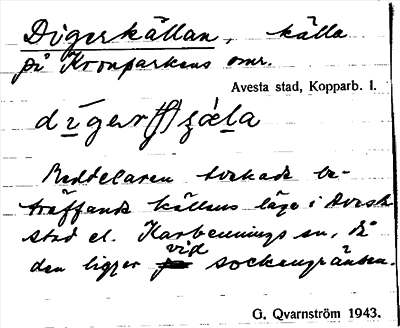 Digerkällan, källa
på Kronparkens omr.
Avesta stad, Kopparb. l.
Meddelaren tvekade be-
träffande källens läge i Avesta
stad el. Karbennings sn, då
den ligger vid sockengränsen.
G. Qvarnström 1943.